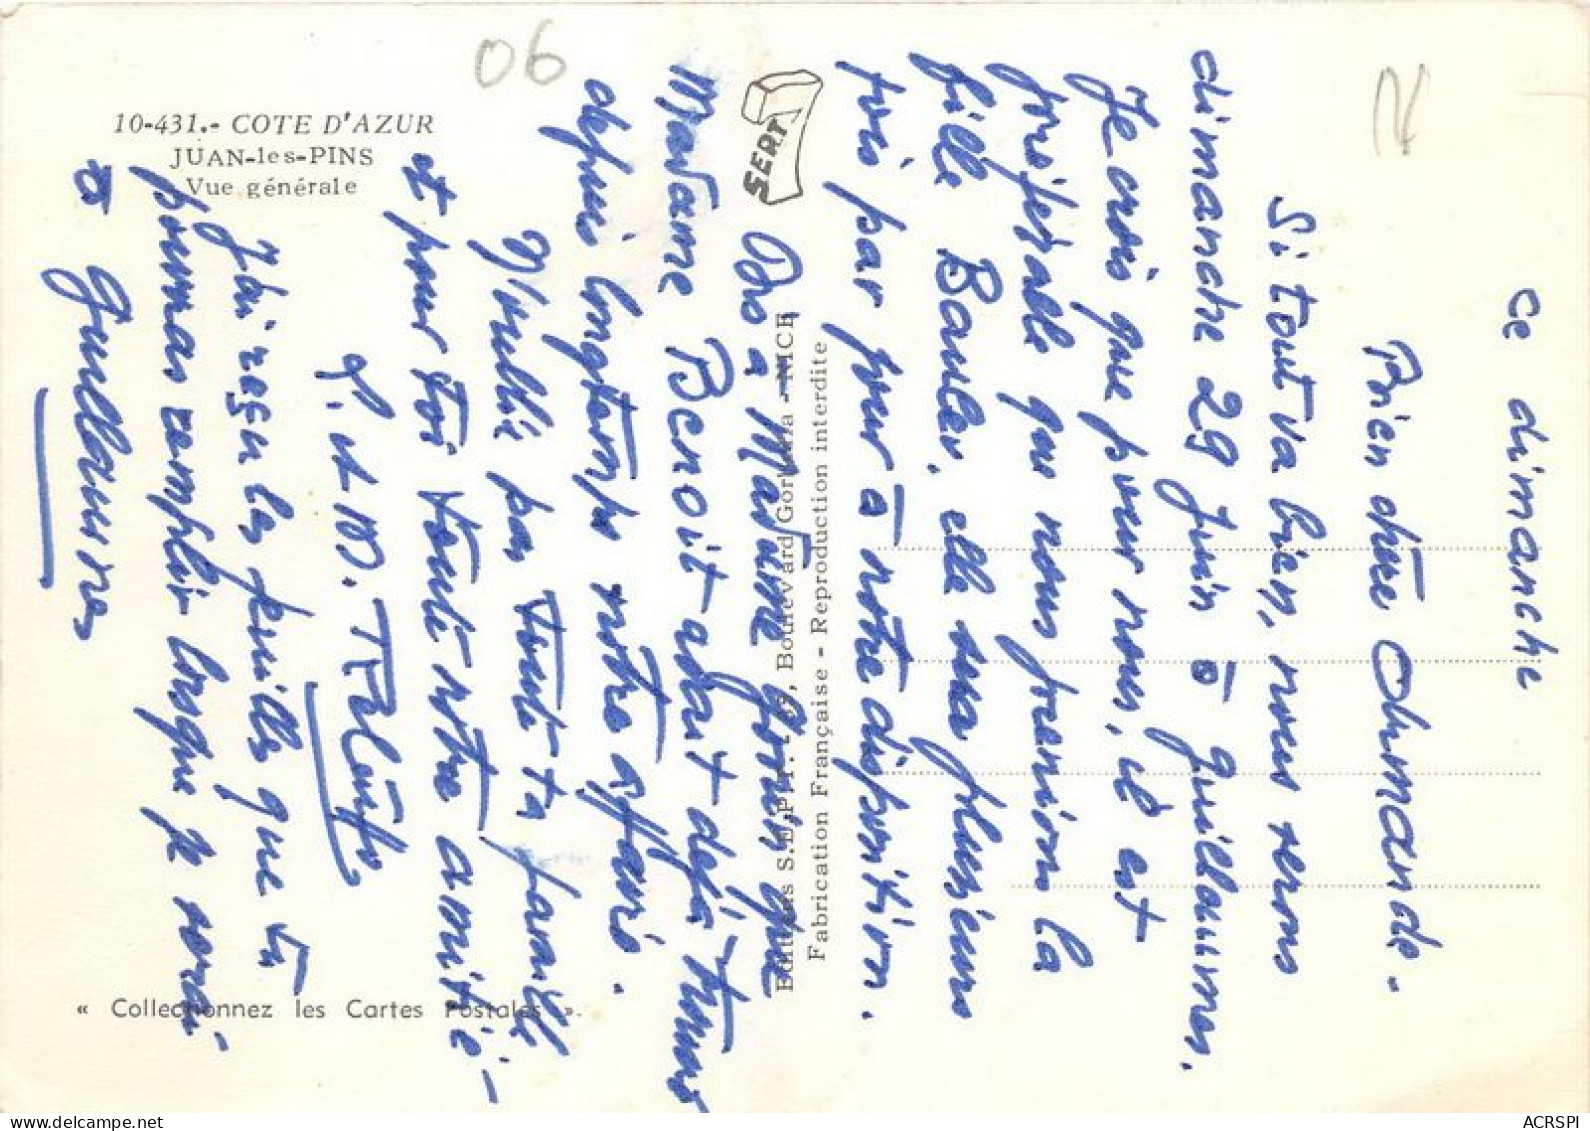 06
10-431.- COTE D'AZUR
JUAN-les-PINS
Vue générale
SERT
Editions S.E.P.T. , Boulevard Gorbella - NICE
Fabrication Française - Reproduction interdite
« Collectionnez les Cartes Postales ».
ce dimanche
Bien chère Armande.
Si tout va bien, nous serons
dimanche 29 juin à Guillaumes.
Je crois que pour nous, il est
préférable que nous prenions la
fille Bauler, elle sera plusieurs
fois par jour à notre disposition.
Dis a Madame Gorin que
Madame Benoit avait déjà trouvé
depuis longtemps notre affaire.
N'oublie pas toute ta famille
et pour toi toute notre amitié -
P. et D.
J'ai reçu les feuilles que tu
pourras remplir lorsque je serai
à Guillaumes
ACRSPI